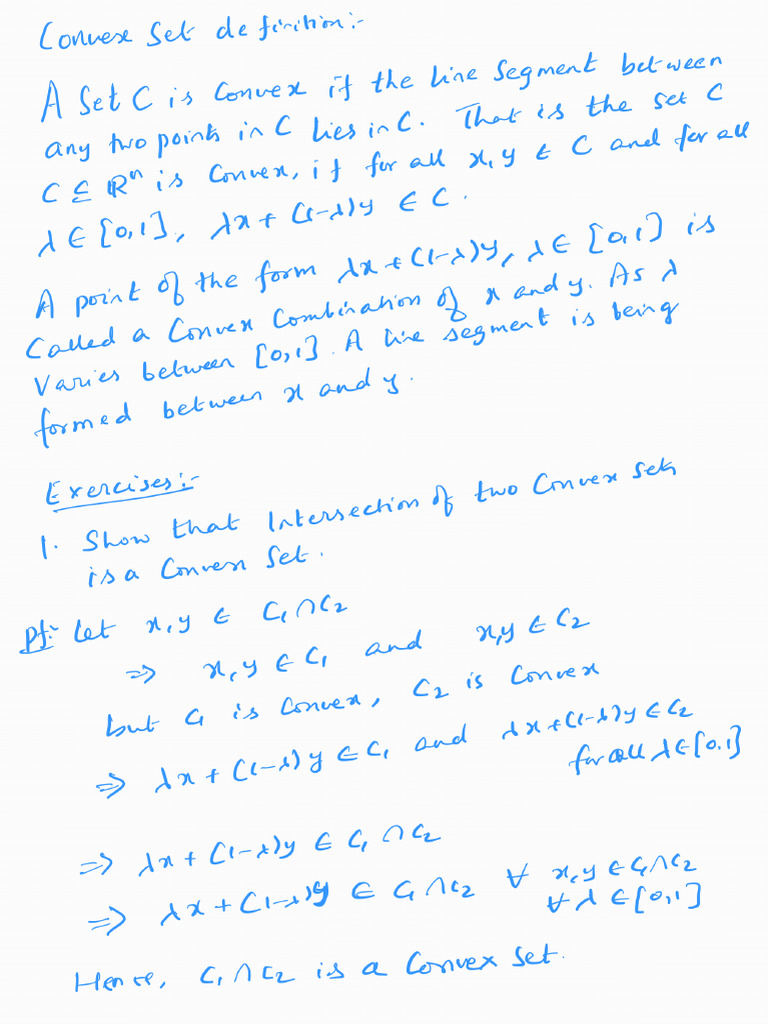 Convex Set definition:-
A Set C is Convex if the line Segment between
any two points in C lies in C. That is the set C
C ⊆ ℝⁿ is Convex, if for all x, y ∈ C and for all
λ ∈ [0,1], λx + (1-λ)y ∈ C.
A point of the form λx + (1-λ)y, λ ∈ [0,1] is
Called a Convex Combination of x and y. As λ
Varies between [0,1]. A line segment is being
formed between x and y.
Exercises:-
1. Show that Intersection of two Convex Sets
is a Convex Set.
Pf:- Let x, y ∈ C₁ ∩ C₂
⇒ x, y ∈ C₁ and x, y ∈ C₂
but C₁ is Convex, C₂ is Convex
⇒ λx + (1-λ)y ∈ C₁ and λx + (1-λ)y ∈ C₂
for all λ ∈ [0,1]
⇒ λx + (1-λ)y ∈ C₁ ∩ C₂
⇒ λx + (1-λ)y ∈ C₁ ∩ C₂ ∀ x, y ∈ C₁ ∩ C₂
∀ λ ∈ [0,1]
Hence, C₁ ∩ C₂ is a Convex Set.